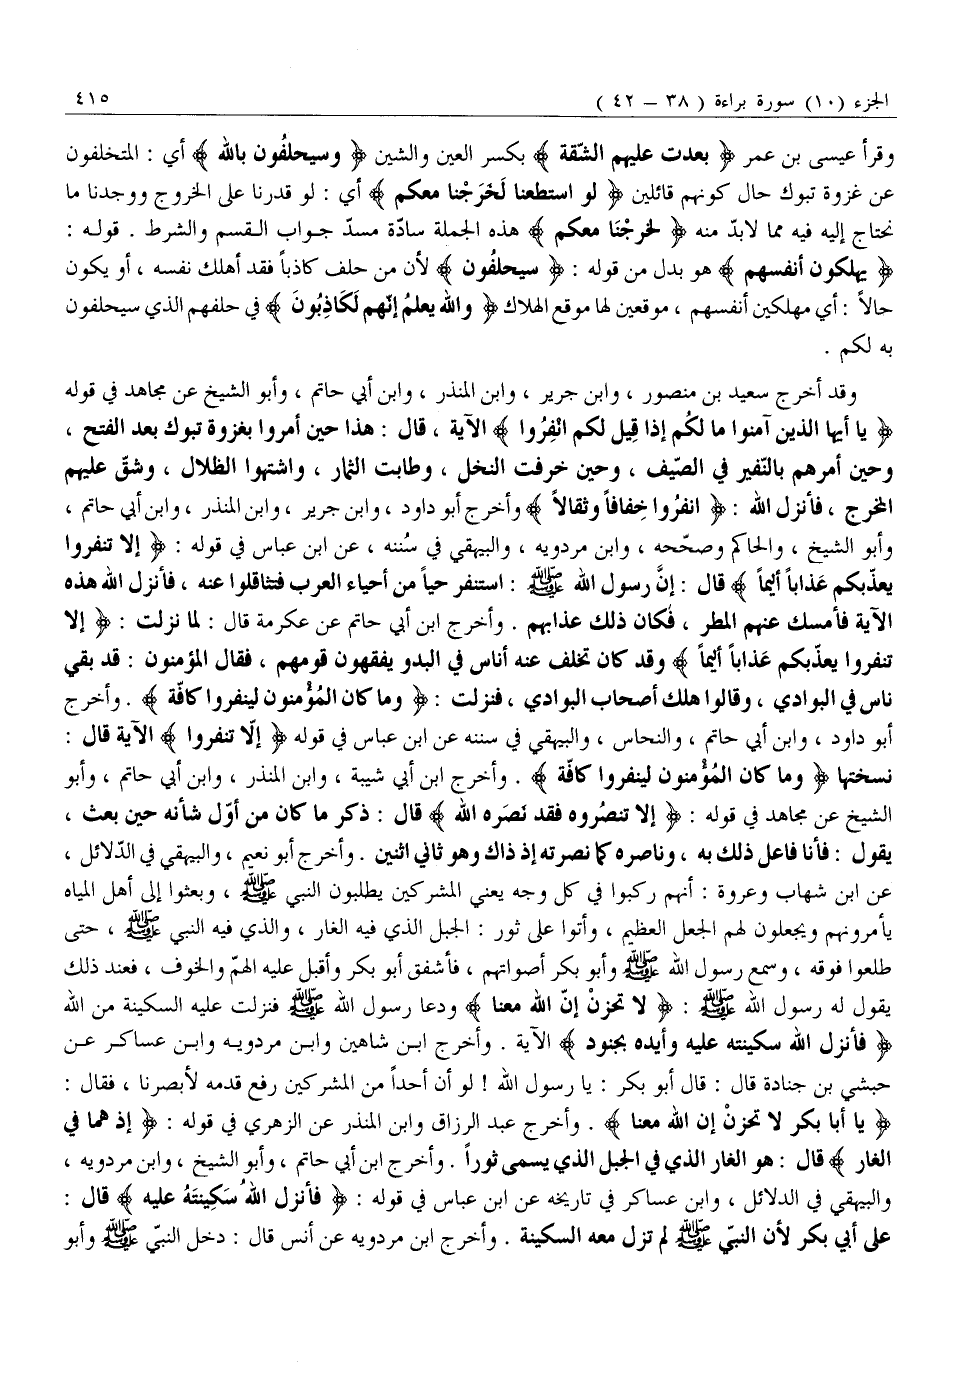 الجزء (١٠) سورة براءة ( ٣٨ – ٤٢ ) ٤١٥
وقرأ عيسى بن عمر ﴿ بعدت عليهم الشّقة ﴾ بكسر العين والشين ﴿ وسيحلفُون بالله ﴾ أي : المتخلفون
عن غزوة تبوك حال كونهم قائلين ﴿ لو استطعنا لَخَرَجْنا معكم ﴾ أي : لو قدرنا على الخروج ووجدنا ما
نحتاج إليه فيه مما لابدّ منه ﴿ لخرجْنَا معكم ﴾ هذه الجملة سادّة مسدّ جواب القسم والشرط . قوله :
﴿ يهلكون أنفسهم ﴾ هو بدل من قوله : ﴿ سيحلفُون ﴾ لأن من حلف كاذباً فقد أهلك نفسه ، أو يكون
حالاً : أي مهلكين أنفسهم ، موقعين لها موقع الهلاك ﴿ والله يعلمُ إنّهم لَكَاذِبُونَ ﴾ في حلفهم الذي سيحلفون
به لكم .
وقد أخرج سعيد بن منصور ، وابن جرير ، وابن المنذر ، وابن أبي حاتم ، وأبو الشيخ عن مجاهد في قوله
﴿ يا أيها الذين آمنوا ما لكُم إذا قِيل لكم انْفِرُوا ﴾ الآية ، قال : هذا حين أمروا بغزوة تبوك بعد الفتح ،
وحين أمرهم بالنّفير في الصّيف ، وحين خرفت النخل ، وطابت الثمار ، واشتهوا الظلال ، وشقّ عليهم
المخرج ، فأنزل الله : ﴿ انفرُوا خِفافاً وثقالاً ﴾ وأخرج أبو داود ، وابن جرير ، وابن المنذر ، وابن أبي حاتم ،
وأبو الشيخ ، والحاكم وصحّحه ، وابن مردويه ، والبيهقي في سُننه ، عن ابن عباس في قوله : ﴿ إلا تنفروا
يعذّبكم عَذاباً أليماً ﴾ قال : إنَّ رسول الله ﷺ : استنفر حياً من أحياء العرب فتثاقلوا عنه ، فأنزل الله هذه
الآية فأمسك عنهم المطر ، فكان ذلك عذابهم . وأخرج ابن أبي حاتم عن عكرمة قال : لما نزلت : ﴿ إلا
تنفروا يعذّبكم عَذاباً أليماً ﴾ وقد كان تخلف عنه أناس في البدو يفقهون قومهم ، فقال المؤمنون : قد بقي
ناس في البوادي ، وقالوا هلك أصحاب البوادي ، فنزلت : ﴿ وما كان المُؤْمنون لينفروا كافّة ﴾ . وأخرج
أبو داود ، وابن أبي حاتم ، والنحاس ، والبيهقي في سننه عن ابن عباس في قوله ﴿ إلّا تنفروا ﴾ الآية قال :
نسختها ﴿ وما كان المُؤْمنون لينفروا كافّة ﴾ . وأخرج ابن أبي شيبة ، وابن المنذر ، وابن أبي حاتم ، وأبو
الشيخ عن مجاهد في قوله : ﴿ إلا تنصُروه فقد نَصَره الله ﴾ قال : ذكر ما كان من أوّل شأنه حين بعث ،
يقول : فأنا فاعل ذلك به ، وناصره كما نصرته إذ ذاك وهو ثاني اثنين . وأخرج أبو نعيم ، والبيهقي في الدّلائل ،
عن ابن شهاب وعروة : أنهم ركبوا في كل وجه يعني المشركين يطلبون النبي ﷺ ، وبعثوا إلى أهل المياه
يأمرونهم ويجعلون لهم الجعل العظيم ، وأتوا على ثور : الجبل الذي فيه الغار ، والذي فيه النبي ﷺ ، حتى
طلعوا فوقه ، وسمع رسول الله ﷺ وأبو بكر أصواتهم ، فأشفق أبو بكر وأقبل عليه الهمّ والخوف ، فعند ذلك
يقول له رسول الله ﷺ : ﴿ لا تحزنْ إنّ الله معنا ﴾ ودعا رسول الله ﷺ فنزلت عليه السكينة من الله
﴿ فأنزل الله سكينته عليه وأيده بجنود ﴾ الآية . وأخرج ابن شاهين وابن مردويه وابن عساكر عن
حبشي بن جنادة قال : قال أبو بكر : يا رسول الله ! لو أن أحداً من المشركين رفع قدمه لأبصرنا ، فقال :
﴿ يا أبا بكر لا تحزنْ إن الله معنا ﴾ . وأخرج عبد الرزاق وابن المنذر عن الزهري في قوله : ﴿ إذ هما في
الغار ﴾ قال : هو الغار الذي في الجبل الذي يسمى ثوراً . وأخرج ابن أبي حاتم ، وأبو الشيخ ، وابن مردويه ،
والبيهقي في الدلائل ، وابن عساكر في تاريخه عن ابن عباس في قوله : ﴿ فأنزل اللهُ سَكِينتَهُ عليه ﴾ قال :
على أبي بكر لأن النبيّ ﷺ لم تزل معه السكينة . وأخرج ابن مردويه عن أنس قال : دخل النبيّ ﷺ وأبو